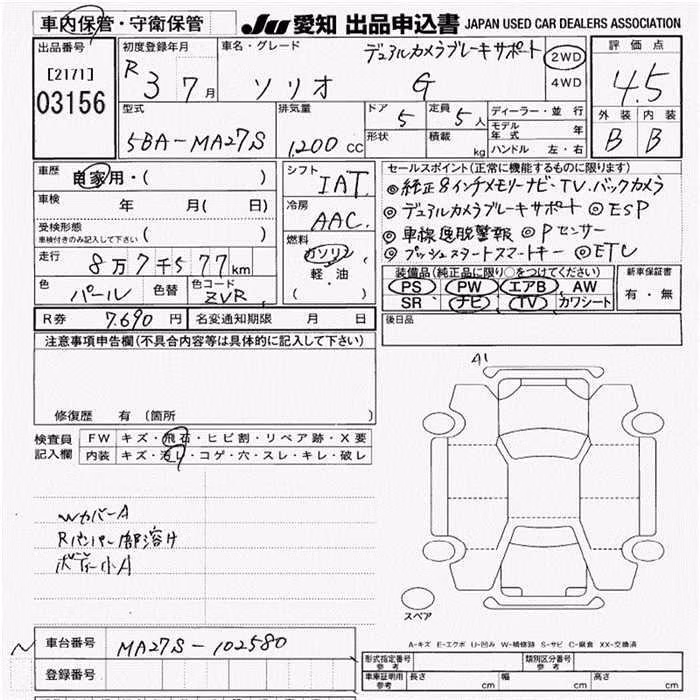 車内保管・守衛保管 JU 愛知 出品申込書 JAPAN USED CAR DEALERS ASSOCIATION
出品番号 初度登録年月 車名・グレード デュアルカメラブレーキサポート 2WD 評価点
[2171] R 3 7月 ソリオ G 4WD 4.5
03156 型式 排気量 ドア 5 定員 5人 ディーラー・並行 外装 内装
5BA-MA27S 1,200 CC 形状 積載 kg モデル年式 年 B B
ハンドル 左・右
車歴 自家用・( ) シフト IAT セールスポイント(正常に機能するものに限ります)
車検 年 月( 日) 冷房 AAC. ◎純正8インチメモリーナビ・TV.バックカメラ
◎デュアルカメラブレーキサポート ◎ESP
受検形態 車検付きのみ記入して下さい ( ) 燃料 ガソリン ◎車線逸脱警報 ◎Pセンサー
走行 8万7千577km 軽・油 ◎プッシュスタートスマートキー ◎ETC
色 パール 色替 色コード ZVR ( ) 装備品(純正品に限り○をつけてください) 新車保証書
PS PW エアB AW 有・無
SR ナビ TV カワシート
R券 7,690円 名変通知期限 月 日 後日品
注意事項申告欄(不具合内容等は具体的に記入して下さい)
A1
修復歴 有 (箇所 )
検査員記入欄 FW キズ・飛石・ヒビ割・リペア跡・X要
内装 キズ・汚レ・コゲ・穴・スレ・キレ・破レ
WカバーA
Rバンパー下部溶け
ボディ小A
スペア
A-キズ E-エクボ U-凹み W-補修跡 S-サビ C-腐食 XX-交換済
車台番号 MA27S-102580
登録番号
形式指定番号 参考 類別区分番号 参考
車庫証明用 参考 長さ cm 幅 cm 高さ cm